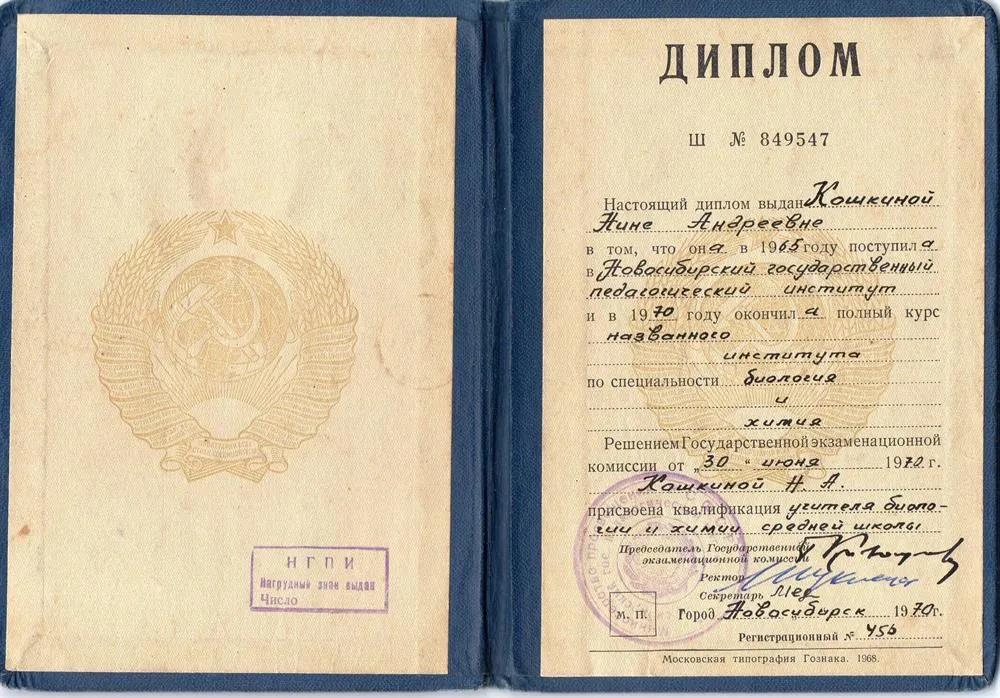 НГПИ
Нагрудный знак выдан
Число
ДИПЛОМ
Ш № 849547
Настоящий диплом выдан Кошкиной
Нине Андреевне
в том, что она в 1965 году поступила
в Новосибирский государственный
педагогический институт
и в 1970 году окончила полный курс
названного
института
по специальности биология
и
химия
Решением Государственной экзаменационной
комиссии от „30“ июня 1970 г.
Кошкиной Н. А.
присвоена квалификация учителя биоло-
гии и химии средней школы
Председатель Государственной
экзаменационной комиссии
Ректор
Секретарь
М. П. Город Новосибирск 1970 г.
Регистрационный № 456
Московская типография Гознака. 1968.